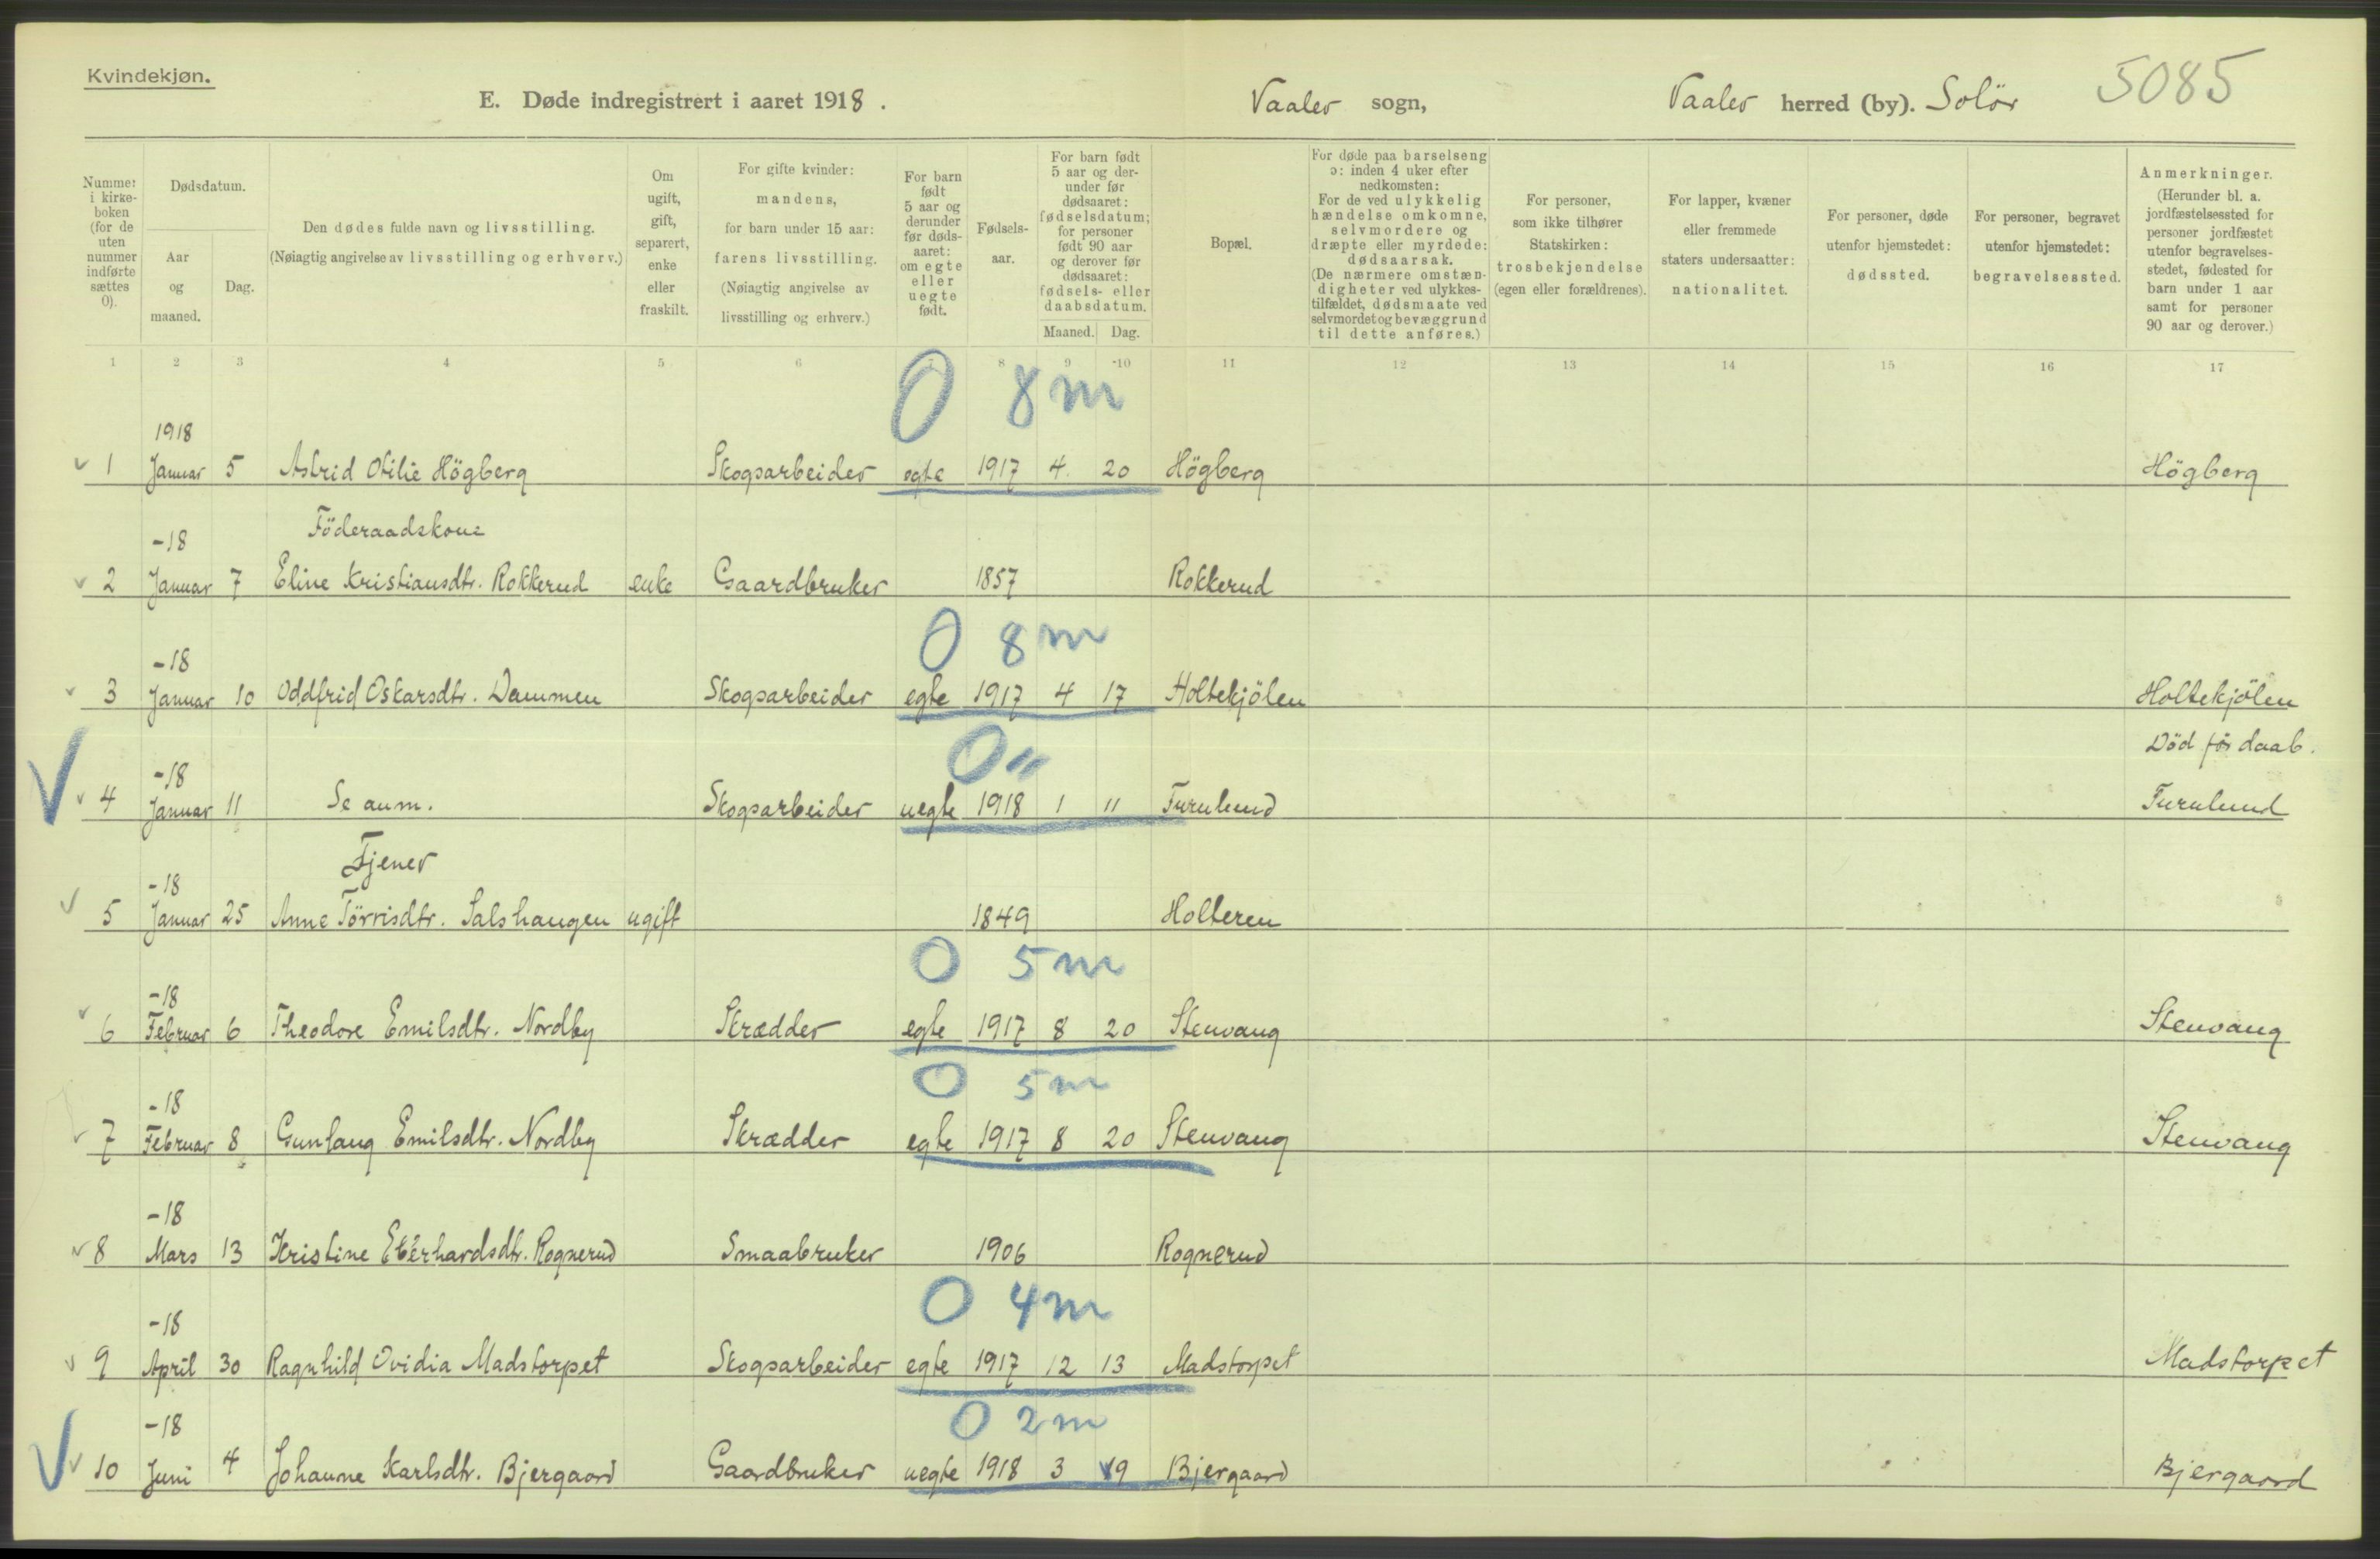 Kvindekjøn.
E. Døde indregistrert i aaret 1918. Vaaler sogn, Vaaler herred (by). Solör 5085
Nummer i kirkeboken (for de uten nummer indførte sættes 0).
Dødsdatum.
Aar og maaned.
Dag.
Den dødes fulde navn og livsstilling.
(Nøiagtig angivelse av livsstilling og erhverv.)
Om ugift, gift, separert, enke eller fraskilt.
For gifte kvinder: mandens, for barn under 15 aar: farens livsstilling. (Nøiagtig angivelse av livsstilling og erhverv.)
For barn født 5 aar og derunder før dødsaaret: om egte eller uegte født.
Fødselsaar.
For barn født 5 aar og derunder før dødsaaret: fødselsdatum; for personer født 90 aar og derover før dødsaaret: fødsels- eller daabsdatum.
Maaned. Dag.
Bopæl.
For døde paa barselseng ɔ: inden 4 uker efter nedkomsten: For de ved ulykkelig hændelse omkomne, selvmordere og dræpte eller myrdede: dødsaarsak. (De nærmere omstændigheter ved ulykkestilfældet, dødsmaate ved selvmordet og bevæggrund til dette anføres.)
For personer, som ikke tilhører Statskirken: trosbekjendelse (egen eller forældrenes).
For lapper, kvæner eller fremmede staters undersaatter: nationalitet.
For personer, døde utenfor hjemstedet: dødssted.
For personer, begravet utenfor hjemstedet: begravelsessted.
Anmerkninger. (Herunder bl. a. jordfæstelsessted for personer jordfæstet utenfor begravelsesstedet, fødested for barn under 1 aar samt for personer 90 aar og derover.)
1 2 3 4 5 6 7 8 9 10 11 12 13 14 15 16 17
0 8 m
1918
1 Januar 5 Astrid Otilie Högberg Skogsarbeider egte 1917 4. 20 Högberg Högberg
-18 Föderaadskone
2 Januar 7 Eline Kristiansdtr. Rokkerud enke Gaardbruker 1857 Rokkerud
0 8 m
-18
3 Januar 10 Oddfrid Oskarsdtr. Dammen Skogsarbeider egte 1917 4 17 Holtekjölen Holtekjölen
0 " Död før daab.
-18
4 Januar 11 Se anm. Skogsarbeider uegte 1918 1 11 Furulund Furulund
-18 Tjener
5 Januar 25 Anne Törrisdtr. Salshaugen ugift 1849 Holteren
0 5 m
-18
6 Februar 6 Theodore Emilsdtr. Nordby Skrædder egte 1917 8 20 Stenvang Stenvang
0 5 m
-18
7 Februar 8 Gunlaug Emilsdtr. Nordby Skrædder egte 1917 8 20 Stenvang Stenvang
-18
8 Mars 13 Kristine Eberhardsdtr. Rognerud Smaabruker 1906 Rognerud
0 4 m
-18
9 April 30 Ragnhild Ovidia Madstorpet Skogsarbeider egte 1917 12 13 Madstorpet Madstorpet
0 2 m
-18
10 Juni 4 Johanne Karlsdtr. Bjergaard Gaardbruker uegte 1918 3 19 Bjergaard Bjergaard